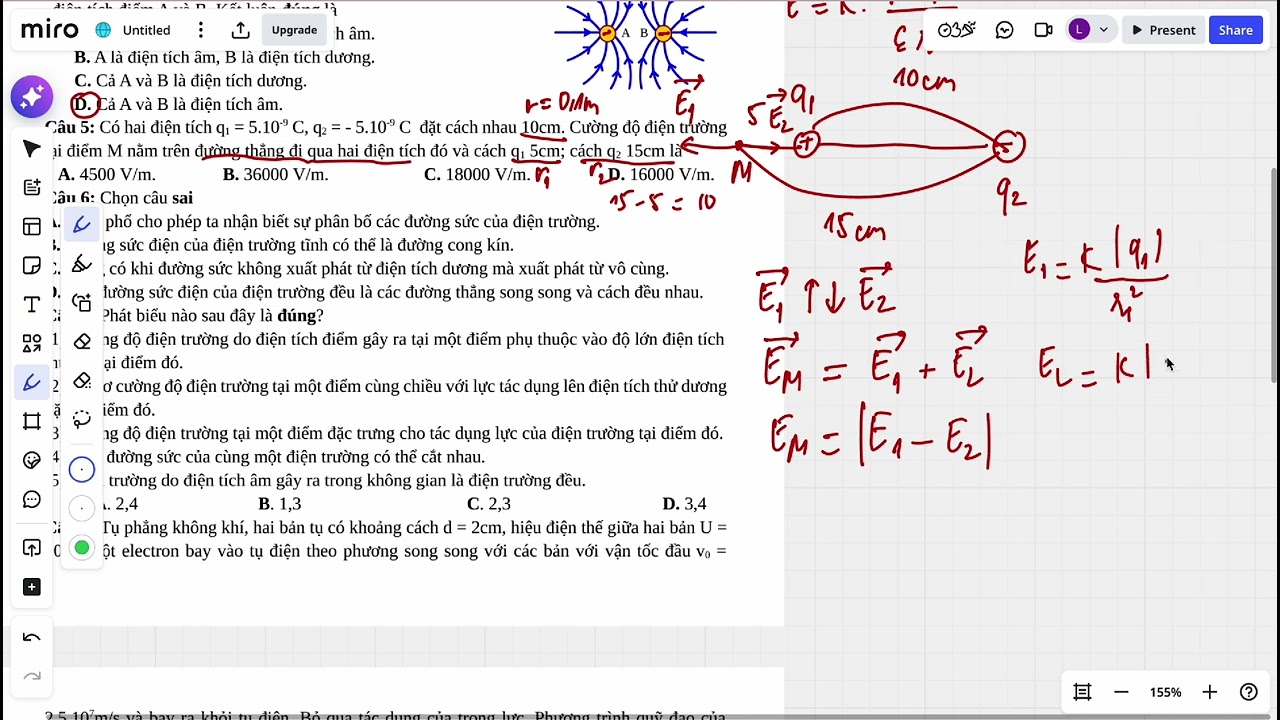 điện tích điểm A và B. Kết luận đúng là
miro Untitled Upgrade
ch âm.
B. A là điện tích âm, B là điện tích dương.
C. Cả A và B là điện tích dương.
D. Cả A và B là điện tích âm.
A B
r = 0,1m
Câu 5: Có hai điện tích q₁ = 5.10⁻⁹ C, q₂ = - 5.10⁻⁹ C đặt cách nhau 10cm. Cường độ điện trường
tại điểm M nằm trên đường thẳng đi qua hai điện tích đó và cách q₁ 5cm; cách q₂ 15cm là
A. 4500 V/m. B. 36000 V/m. C. 18000 V/m. r₁ r₂ D. 16000 V/m.
15 - 5 = 10
Câu 6: Chọn câu sai
phổ cho phép ta nhận biết sự phân bố các đường sức của điện trường.
ng sức điện của điện trường tĩnh có thể là đường cong kín.
có khi đường sức không xuất phát từ điện tích dương mà xuất phát từ vô cùng.
đường sức điện của điện trường đều là các đường thẳng song song và cách đều nhau.
Phát biểu nào sau đây là đúng?
ng độ điện trường do điện tích điểm gây ra tại một điểm phụ thuộc vào độ lớn điện tích
tại điểm đó.
cường độ điện trường tại một điểm cùng chiều với lực tác dụng lên điện tích thử dương
điểm đó.
ng độ điện trường tại một điểm đặc trưng cho tác dụng lực của điện trường tại điểm đó.
đường sức của cùng một điện trường có thể cắt nhau.
trường do điện tích âm gây ra trong không gian là điện trường đều.
A. 2,4 B. 1,3 C. 2,3 D. 3,4
Tụ phẳng không khí, hai bản tụ có khoảng cách d = 2cm, hiệu điện thế giữa hai bản U =
ột electron bay vào tụ điện theo phương song song với các bản với vận tốc đầu v₀ =
2,5.10⁷m/s và bay ra khỏi tụ điện. Bỏ qua tác dụng của trọng lực. Phương trình quỹ đạo của
L Present Share
10cm
E₁ 5 E₂ q₁
+ -
M
q₂
15cm
E₁ ↑↓ E₂
E₁ = k |q₁| / r₁²
E_M = E₁ + E₂
E₂ = k |
E_M = |E₁ - E₂|
155%